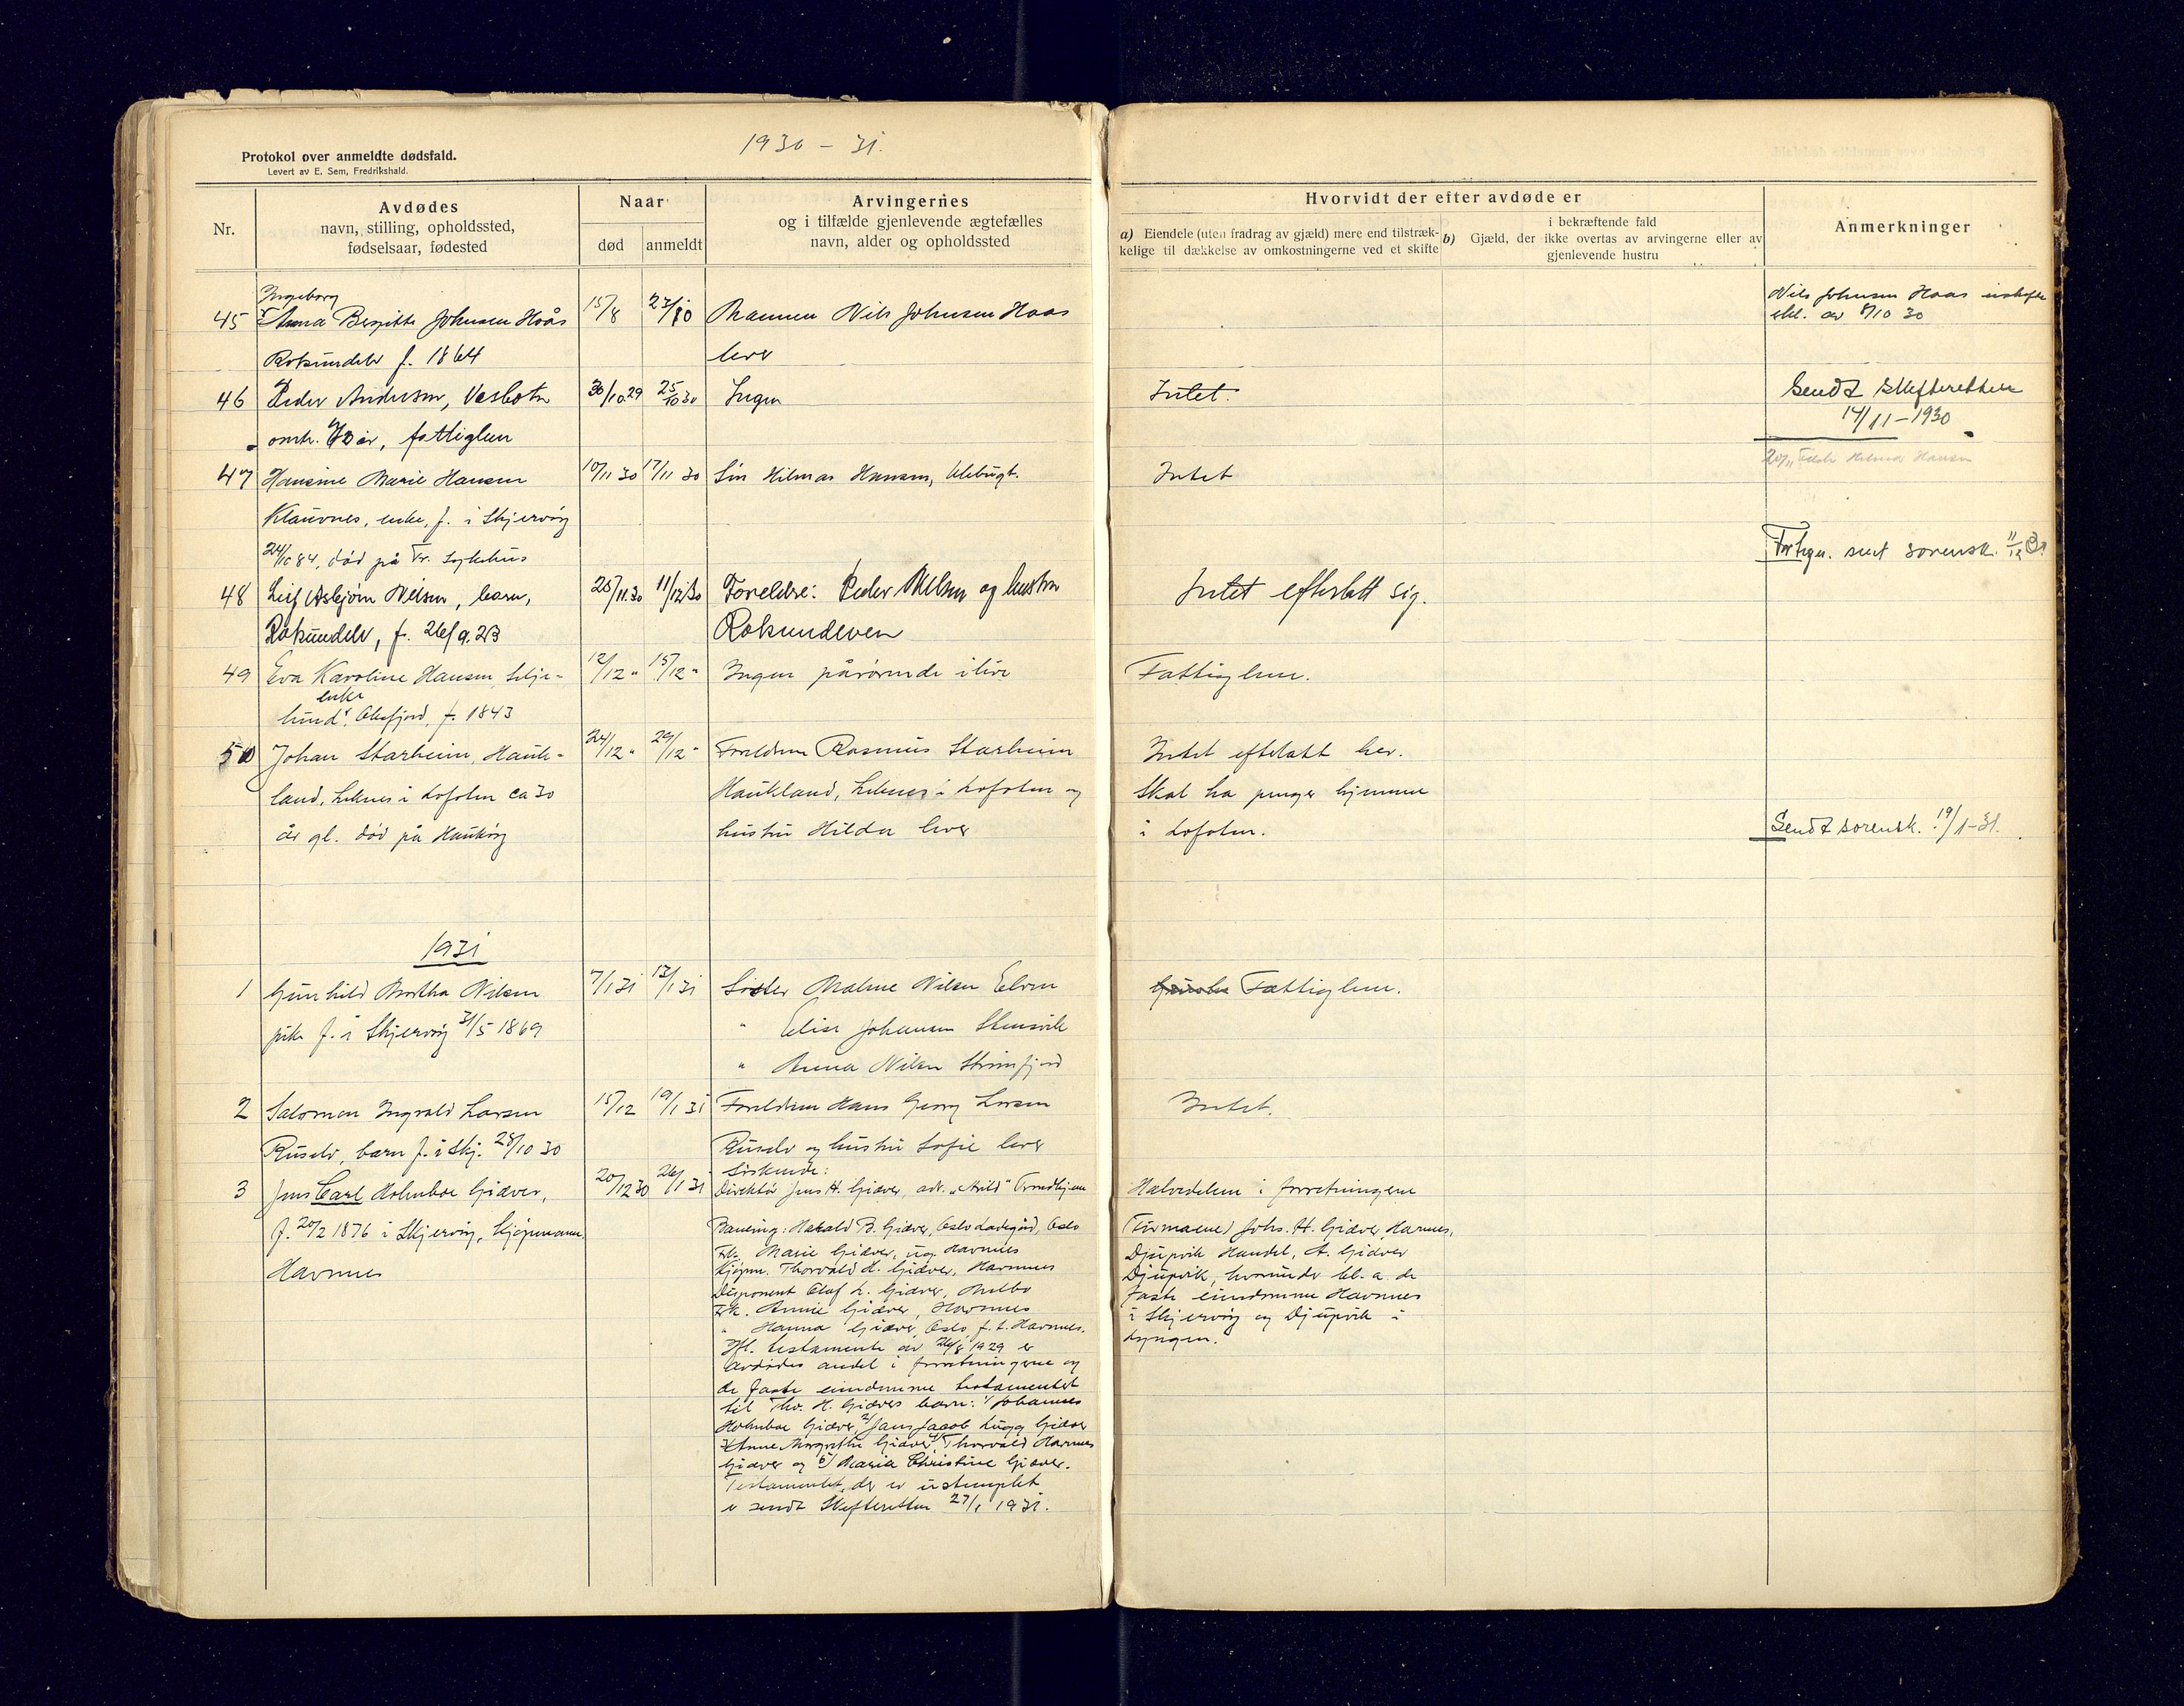 1930 - 31.
Protokol over anmeldte dødsfald.
Levert av E. Sem, Fredrikshald.
Nr.
Avdødes
navn, stilling, opholdssted,
fødselsaar, fødested
Naar
død
anmeldt
Arvingernes
og i tilfælde gjenlevende ægtefælles
navn, alder og opholdssted
Hvorvidt der efter avdøde er
a) Eiendele (uten fradrag av gjæld) mere end tilstræk-
kelige til dækkelse av omkostningerne ved et skifte
i bekræftende fald
b) Gjæld, der ikke overtas av arvingerne eller av
gjenlevende hustru
Anmerkninger
Ingeborg
45 Anna Bergitte Johnsen Hoås 15/8 27/10 Mannen Nils Johnsen Hoas Nils Johnsen Hoas
av 8/10 30
Rotsundelv f. 1864 lever
46 Peder Andersen, Vasbotn 30/10.29 25/10 30 Ingen Intet. Sendt Skifteretten
14/11-1930
omtr. år, fattiglem
47 Hansine Marie Hansen 10/11 30 17/11 30 Søn Hilmar Hansen, Intet
20/11 Hilmar Hansen
Klauvnes, enke, f. i Skjervøy
24/10 84, død på Tr. Sykehus
sorensk. 11/12
48 Leif Asbjørn Nilsen, barn, 25/11.30 11/12 30 Foreldre: Peder Nilsen og hustru Intet efterlatt sig.
Rotsundelv, f. 26/9.23 Rotsundelven
49 Eva Karoline Hansen Silje- 12/12 " 15/12 " Ingen pårørende i live Fattiglem.
enke
lund, Oksfjord, f. 1843
50 Johan Starheim, Hauk- 24/12 " 29/12 " Foreldrene Rasmus Starheim Intet efterlatt her.
land, Leknes i Lofoten ca 30 Haukland, Leknes i Lofoten og Skal ha penger hjemme
år gl. død på Haukøy hustru Hilda lever i Lofoten.
Sendt sorensk. 19/1-31.
1931
1 Gunhild Martha Nilsen 7/1 31 13/1 31 Søster Malene Nilsen Elven Fattiglem.
pike f. i Skjervøy 31/5 1869 " Elise Johansen Stensvik
" Anna Nilsen Straumfjord
2 Salomon Ingvald Larsen 15/12 19/1 31 Foreldrene Hans Georg Larsen Intet.
Ruselv, barn f. i Skj. 28/10 30 Ruselv og hustru Sofie lever
Søskende:
3 Jens Carl Holmboe Giæver, 20/12 30 26/1 31 Direktør Jens H. Giæver, adr. "Arild" Trondhjem Halvedelen i forretningene
f. 20/2 1876 i Skjervøy, kjøpmann. Baneing: Harald B. Giæver, Oslo Ladegård, Oslo (Firmaene) Johs. H. Giæver, Havnnes,
Havnnes Frk. Marie Giæver, ug. Havnnes Djupvik Handel, A. Giæver
Kjøpm. Thorvald H. Giæver, Havnnes Djupvik, herunder bl. a. de
Disponent Olaf L. Giæver, Melbo faste eiendomme Havnnes
Frk. Annie Giæver, Havnnes i Skjervøy og Djupvik i
" Hanna Giæver, Oslo, f. t. Havnnes. Lyngen.
Ifl. testamente av 26/8 1929 er
avdødes andel i forretningene og
de faste eiendomme testamentet
til Thv. H. Giævers barn: 1/ Johannes
Holmboe Giæver, 2/ Jens Jacob Lugg Giæver
3/ Anne Margrethe Giæver, 4/ Thorvald Havnnes
Giæver og 5/ Maria Christine Giæver.
Testamentet, der er ustemplet
er sendt Skifteretten 27/1 1931.